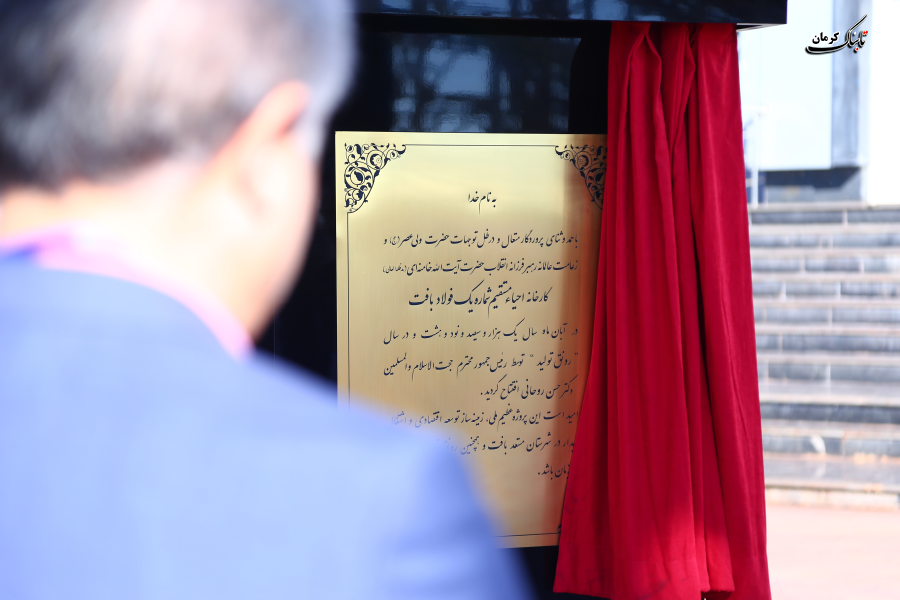 تابناک کرمان
به نام خدا
با حمد و ثنای پروردگار متعال و در ظل توجهات حضرت ولی عصر (عج) و
زعامت عالمانه رهبر فرزانه انقلاب حضرت آیت الله خامنه‌ای
کارخانه احیاء مستقیم شماره یک فولاد بافت
در آبان ماه سال یک هزار و سیصد و نود و هشت و در سال
"رونق تولید" توسط رئیس جمهور محترم حجت الاسلام والمسلمین
دکتر حسن روحانی افتتاح گردید .
امید است این پروژه عظیم ملی، زمینه ساز توسعه اقتصادی و
در شهرستان مستعد بافت و همچنین
باشد .